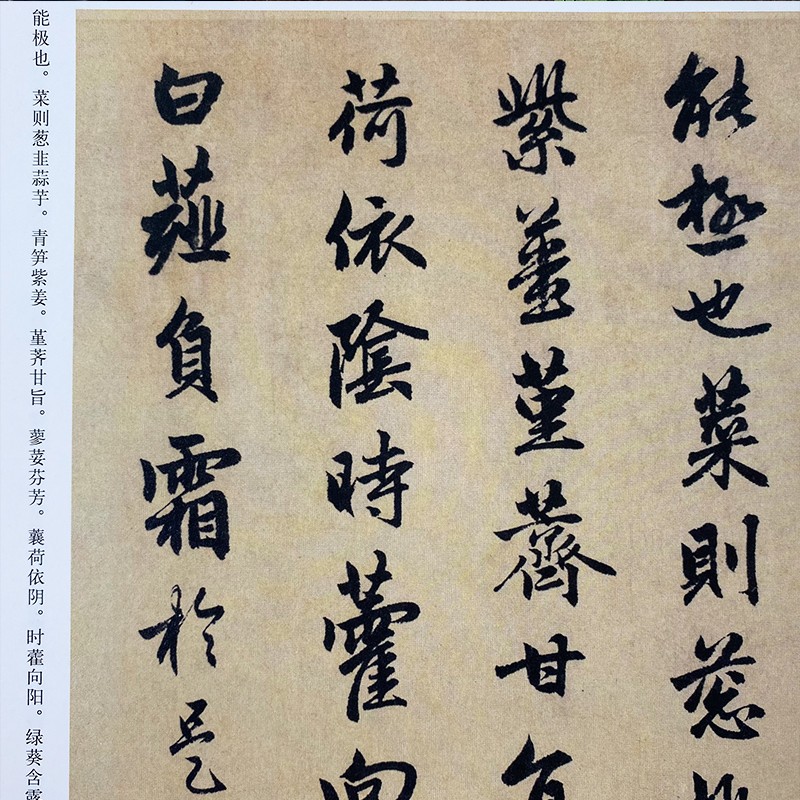 能極也菜則葱
紫薑堇薺甘
荷依陰時藿向
白薤負霜於是
能极也。菜则葱韭蒜芋。青笋紫姜。堇荠甘旨。蓼荽芬芳。蘘荷依阴。时藿向阳。绿葵含露